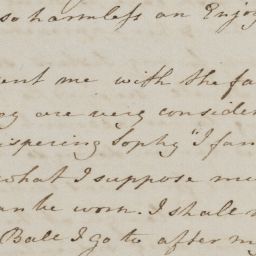 so harmless an Enjoy
ent me with the fa
ey are very consider
ispering Sophy "I fan
what I suppose mu
an be worn. I shall
Ball I go to after my